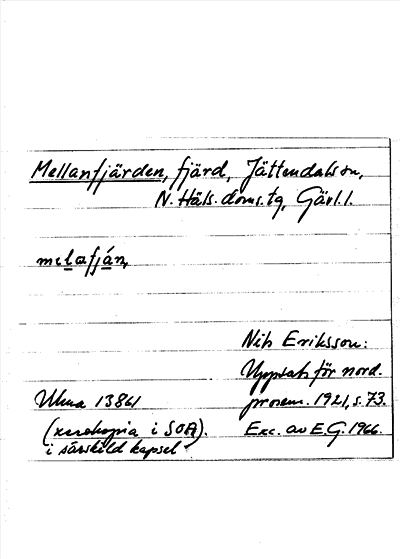 Mellanfjärden, fjärd, Jättendals sn,
N. Häls. doms.tg, Gävl. l.
melafján,
Nils Eriksson:
Uppsats för nord.
prosem. 1921, s. 73.
Exc. av E.G. 1966.
Uluа 13861
(xerokopia i SOA).
i särskild kapsel